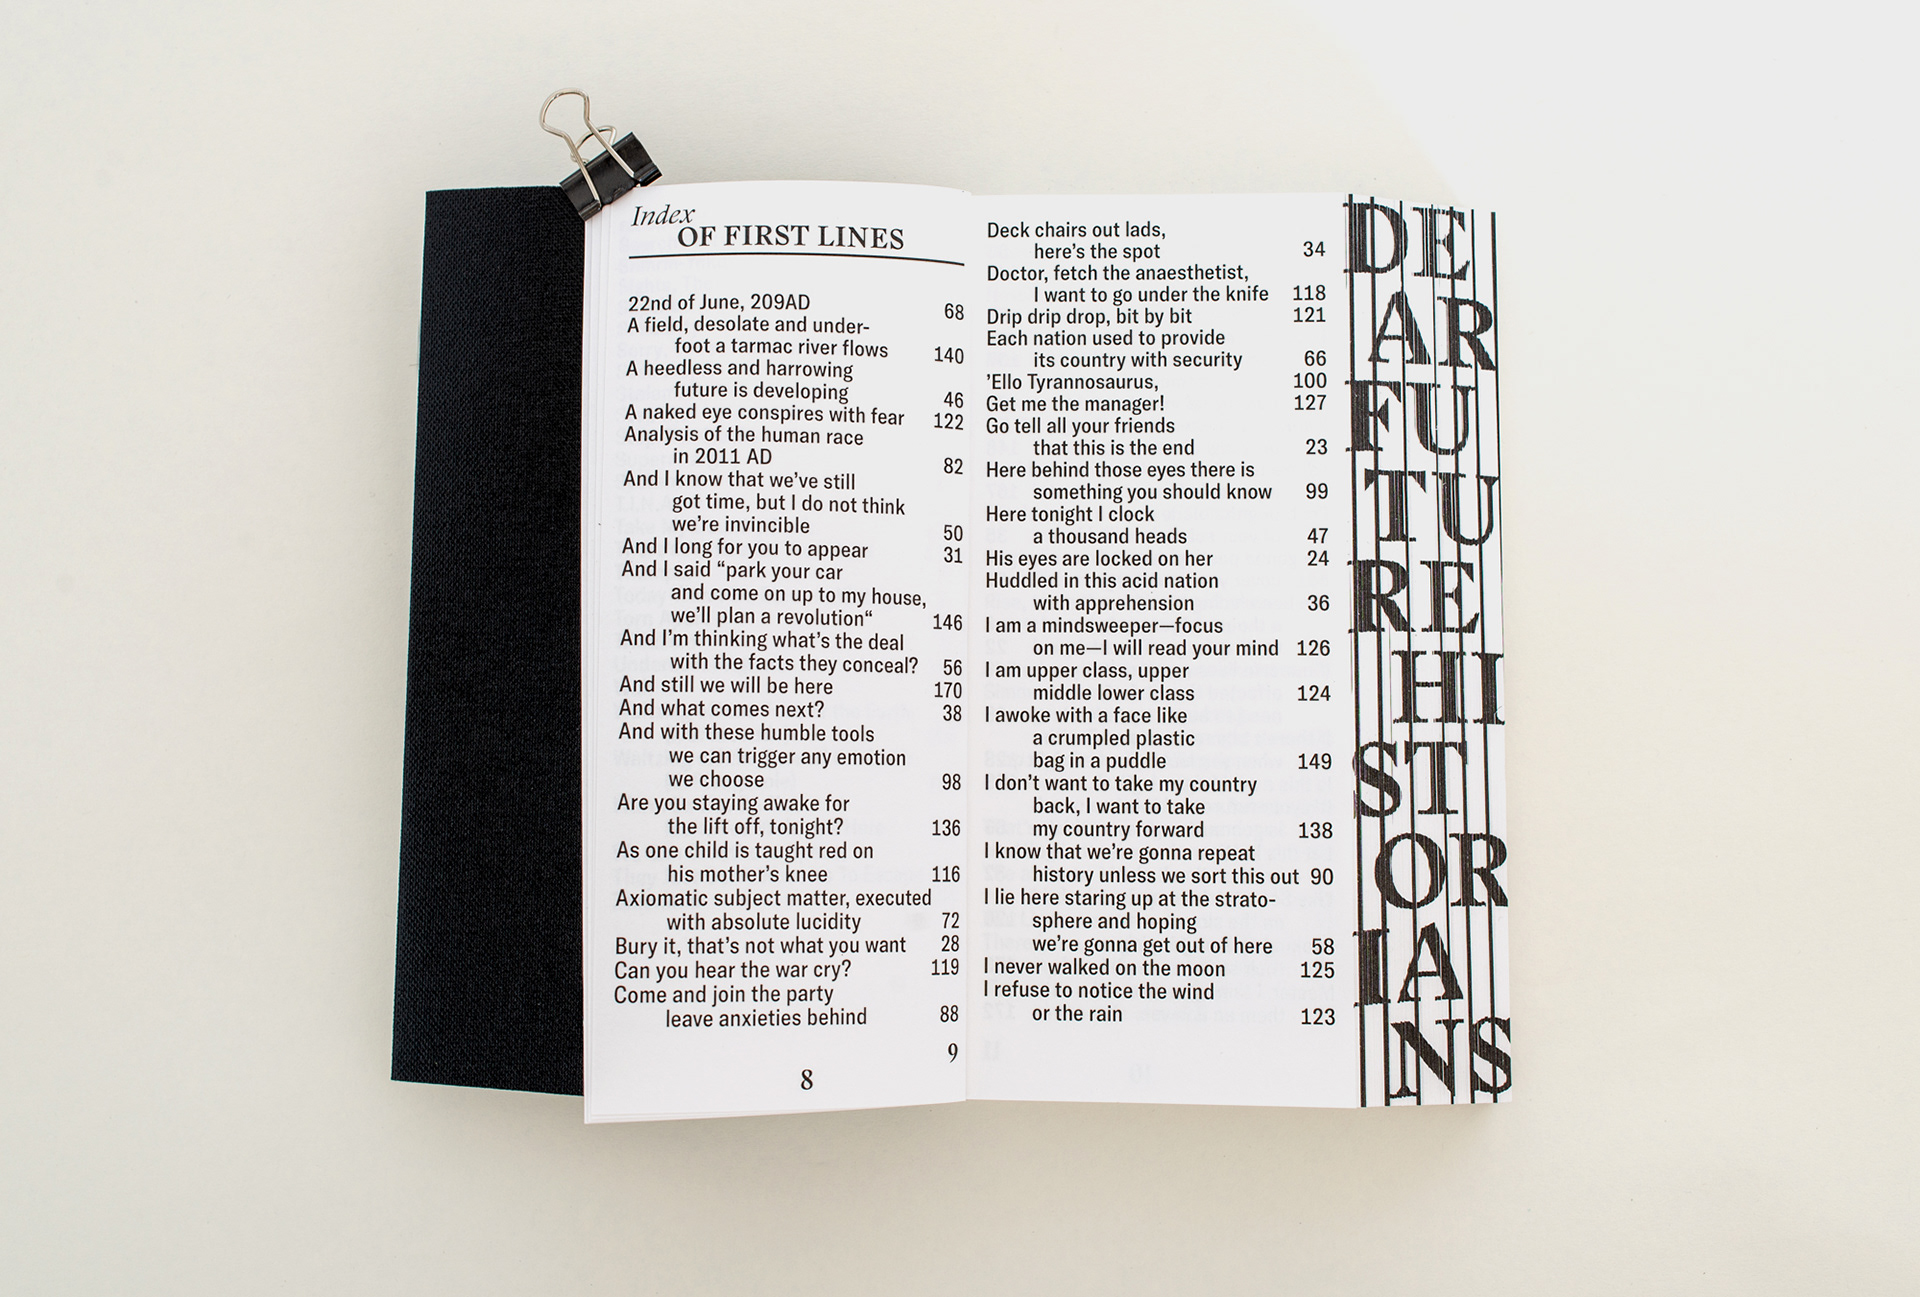 Index
OF FIRST LINES
22nd of June, 209AD 68
A field, desolate and under-
foot a tarmac river flows 140
A heedless and harrowing
future is developing 46
A naked eye conspires with fear 122
Analysis of the human race
in 2011 AD 82
And I know that we've still
got time, but I do not think
we're invincible 50
And I long for you to appear 31
And I said “park your car
and come on up to my house,
we'll plan a revolution“ 146
And I'm thinking what's the deal
with the facts they conceal? 56
And still we will be here 170
And what comes next? 38
And with these humble tools
we can trigger any emotion
we choose 98
Are you staying awake for
the lift off, tonight? 136
As one child is taught red on
his mother's knee 116
Axiomatic subject matter, executed
with absolute lucidity 72
Bury it, that's not what you want 28
Can you hear the war cry? 119
Come and join the party
leave anxieties behind 88
9
8
Deck chairs out lads,
here's the spot 34
Doctor, fetch the anaesthetist,
I want to go under the knife 118
Drip drip drop, bit by bit 121
Each nation used to provide
its country with security 66
’Ello Tyrannosaurus, 100
Get me the manager! 127
Go tell all your friends
that this is the end 23
Here behind those eyes there is
something you should know 99
Here tonight I clock
a thousand heads 47
His eyes are locked on her 24
Huddled in this acid nation
with apprehension 36
I am a mindsweeper—focus
on me—I will read your mind 126
I am upper class, upper
middle lower class 124
I awoke with a face like
a crumpled plastic
bag in a puddle 149
I don't want to take my country
back, I want to take
my country forward 138
I know that we're gonna repeat
history unless we sort this out 90
I lie here staring up at the strato-
sphere and hoping
we're gonna get out of here 58
I never walked on the moon 125
I refuse to notice the wind
or the rain 123
DE
AR
FU
TU
RE
HI
ST
OR
IA
NS